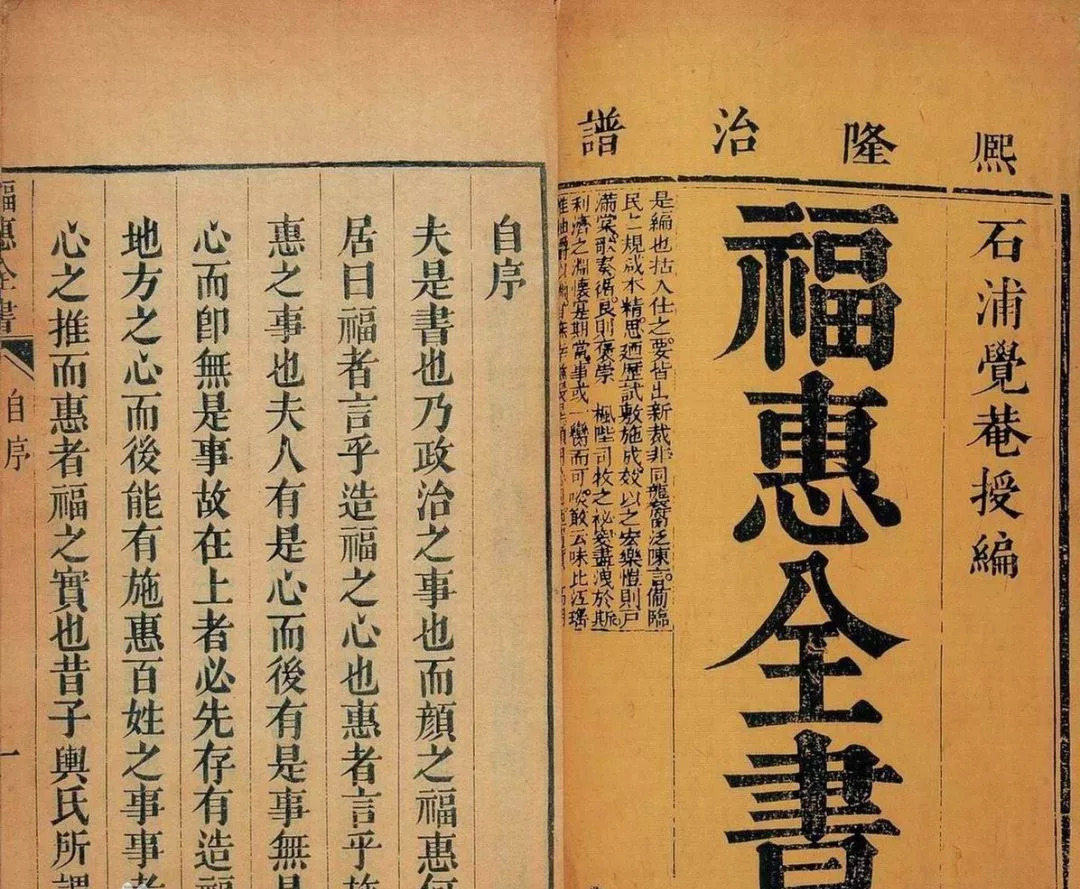 熙隆治譜
石浦覺菴授編
福惠全書
是編也括入仕之要皆出新裁非同龍窩泛陳言備臨
民二規咸本精思廼歷試敷施成效以之宏樂愷則戶
滿棠歌奏循良則褒崇 楓陛司牧之祕窔盡洩於斯
利濟之淵懷寔期當事或一臠而可啖敢云味比江瑤
自序
夫是書也乃政治之事也而顏之福惠何
居曰福者言乎造福之心也惠者言乎施
惠之事也夫人有是心而後有是事無是
心而卽無是事故在上者必先存有造福
地方之心而後能有施惠百姓之事事者
心之推而惠者福之實也昔子輿氏所謂
福惠全書
自序
一